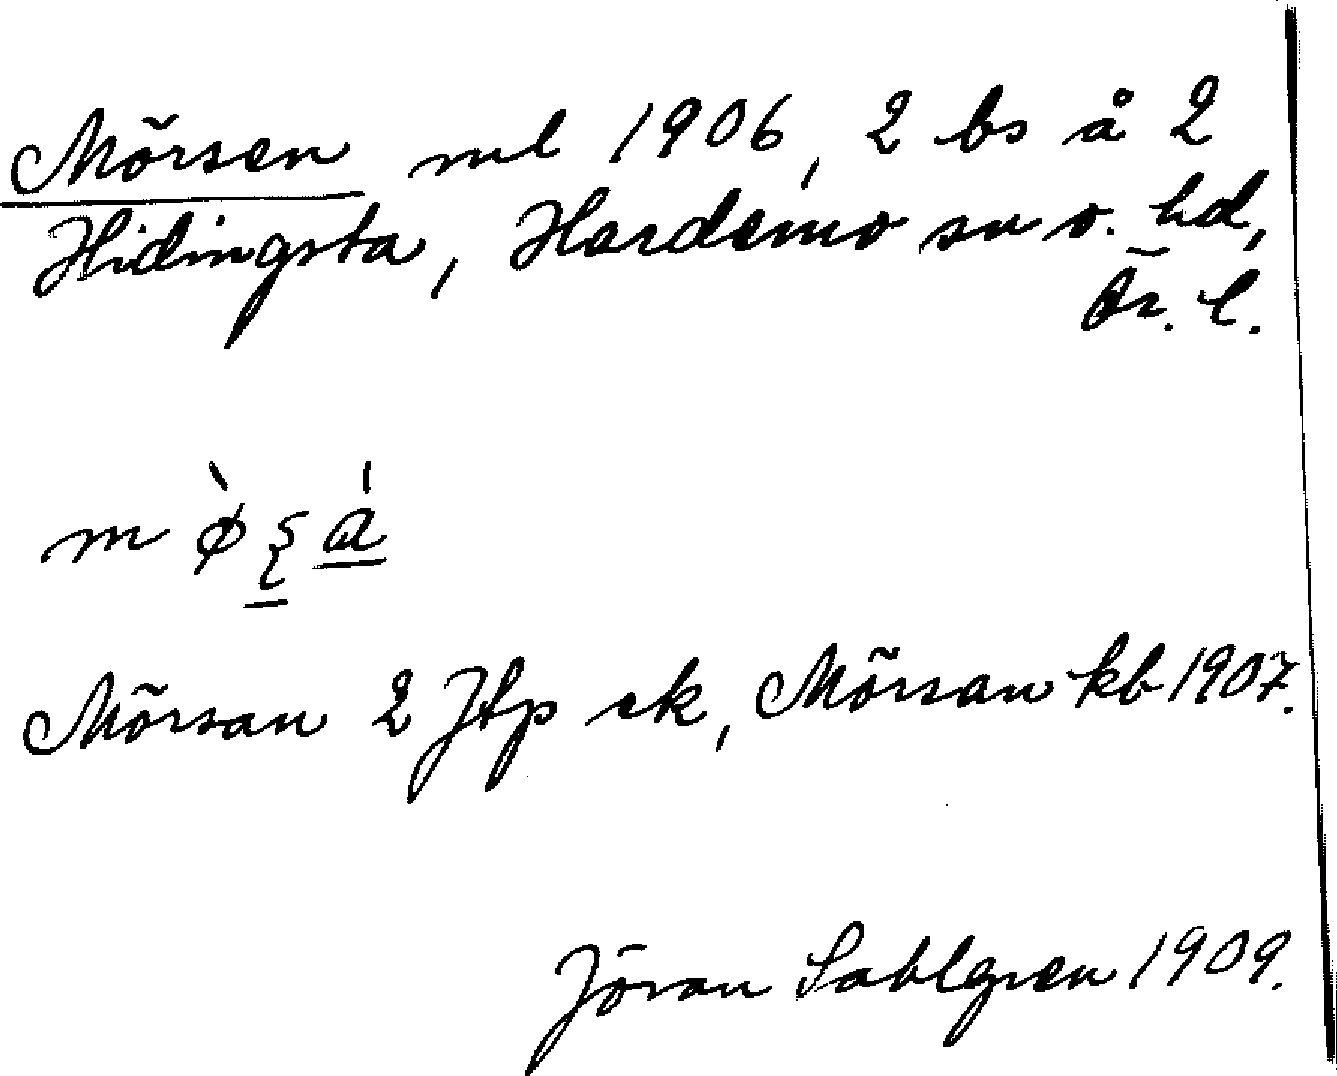 Mörsen ml 1906, 2 bs å 2
Hidingsta, Hardemo sn o. hd,
Ör. l.
Mörsan 2 Jfp ek, Mörsan kb 1907.
Jöran Sahlgren 1909.